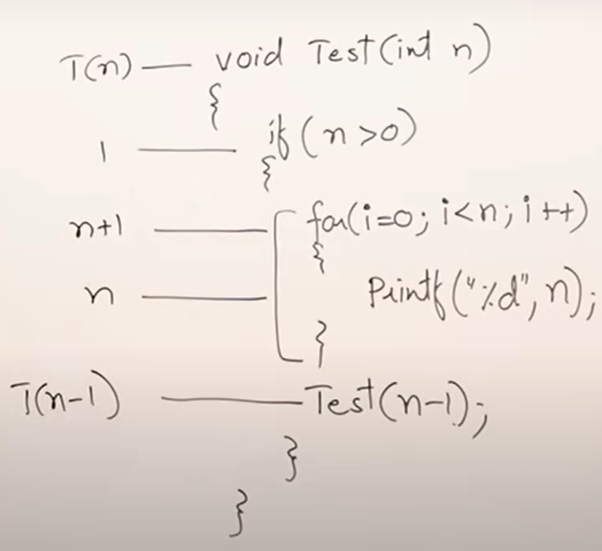 T(n) — void Test(int n)
{
1 — if(n>0)
{
n+1 — for(i=0; i<n; i++)
{
n — Printf("%d", n);
}
T(n-1) — Test(n-1);
}
}